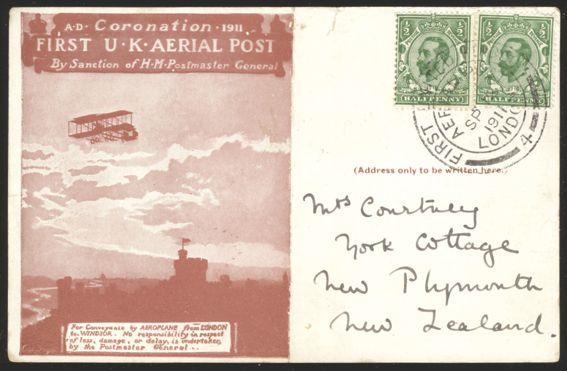 A·D· Coronation ·1911
FIRST U·K·AERIAL POST
By Sanction of H·M·Postmaster General
½ ½ ½ ½
HALFPENNY HALFPENNY
FIRST AERIAL
SP
1911
LONDON
(Address only to be written here.)
Mrs Courtney
York Cottage
New Plymouth
New Zealand.
For Conveyance by AEROPLANE from LONDON
to WINDSOR. No responsibility in respect
of loss, damage, or delay, is undertaken
by the Postmaster General..